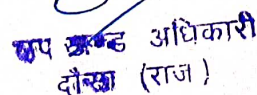 उप खण्ड अधिकारी
दौसा (राज)